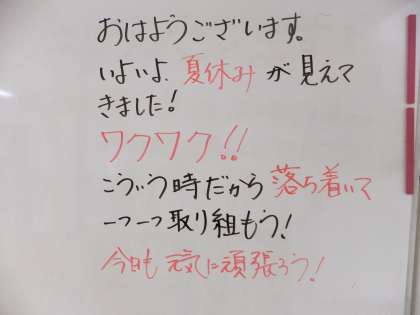 おはようございます。
いよいよ、夏休みが見えて
きました!
ワクワク!!
こういう時だから落ち着いて
一つ一つ取り組もう!
今日も元気に頑張ろう!